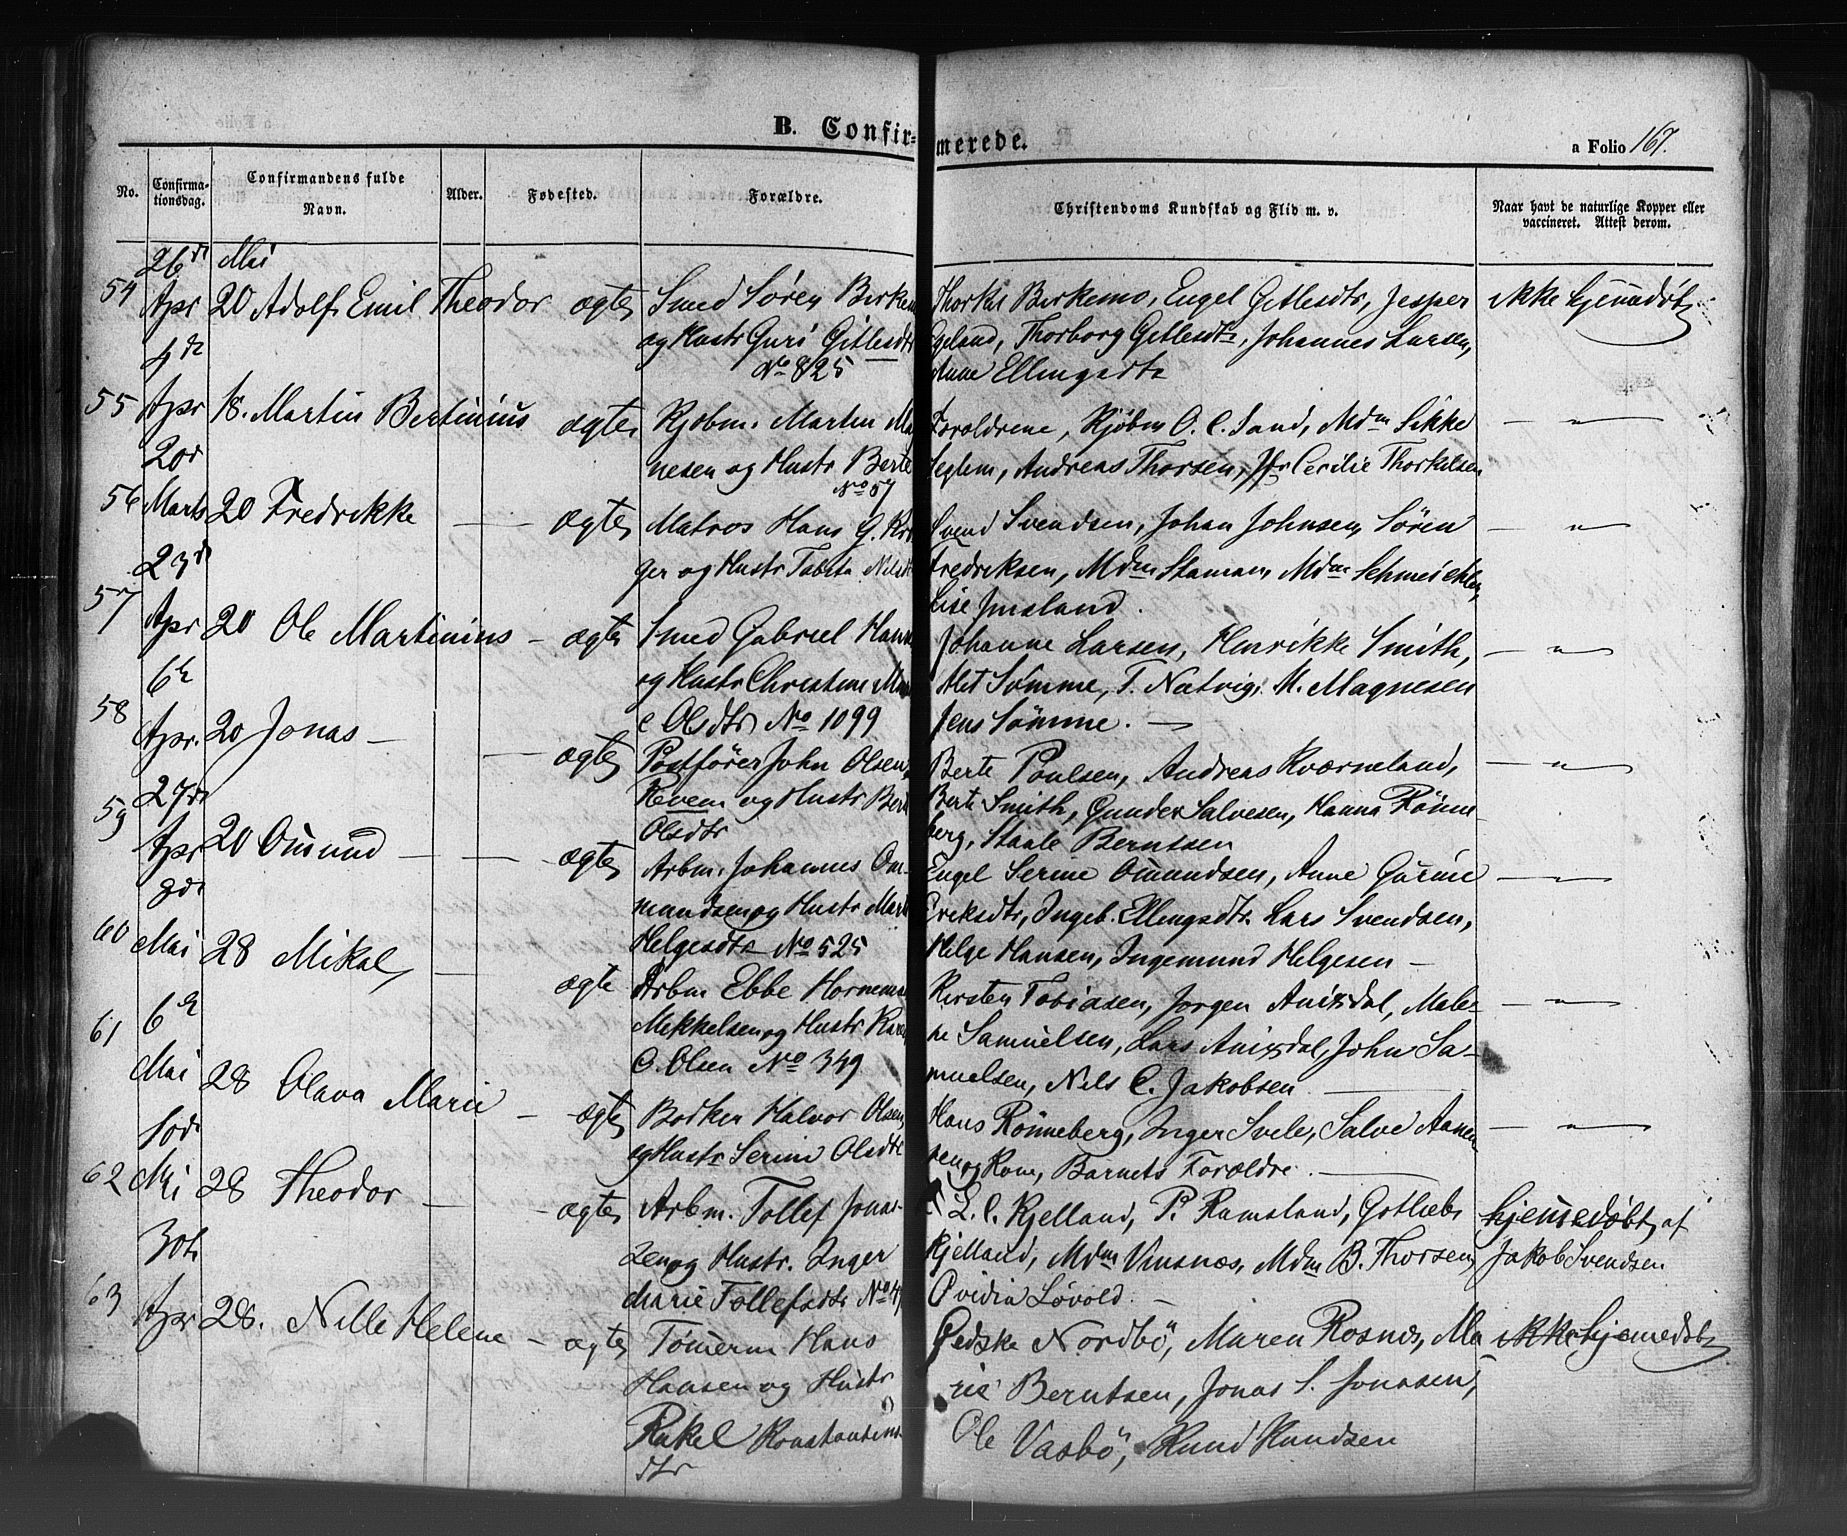 B. Confir=merede.
a Folio 167.
No. Confirmationsdag. Confirmandens fulde Navn. Alder. Fødested. Forældre. Christendoms Kundskab og Flid m. v. Naar havt de naturlige Kopper eller vaccineret. Attest derom.
26de Mai
54 Apr 20 Adolf Emil Theodor ægte Smed Sören Birkem Thorkel Birkemo, Engel Gitlesdtr, Jesper ikke hjemmedöbt
4de og Hustr Guri Gitlesdtr Egeland, Thorborg Gitlesdtr, Johannes Larsen,
No 825 Anne Ellingsdtr
55 Apr 18. Martin Bertinius ægte Kjöbm. Martin Ma Forældrene, Kjöbm O. C. Sand, Mdm Sikke — " —
20de nesen og Hustr Berte Seglem, Andreas Thorsen, Jfr Cecilie Thorkelsen
No 57
56 Marts 20 Fredrikke — — ægte Matros Hans G. Kr Svend Svendsen, Johan Johnsen, Sören — " —
23de ger og Hustr Tabita Nilsdtr Fredriksen, Mdm Staman, Mdm Schmeichler,
Lise Imsland.
57 Apr 20 Ole Martinius — ægte Smed Gabriel Hans Johanne Larsen, Henrikke Smith, — " —
6te og Hustr Christine M Met Sömme, T. Natvig, M. Magnesen
e Olsdtr No 1099 Jens Sömme. —
58 Apr. 20 Jonas — — ægte Postförer John Olsen Berte Poulsen, Andreas Kværneland, — " —
27de og Hustr Bert Berte Smith, Gunder Salvesen, Hanna Rönne
Olsdtr berg, Staale Berntsen
59 Apr 20 Omund — — ægte Arbm. Johannes Om Engel Serine Omundsen, Anne Gurine — " —
9de mundsen og Hustr Mart Eriksdtr, Ingeb. Ellingsdtr. Lars Svendsen,
Helgesdtr No 525 Helge Hansen, Ingemund Helgesen —
60 Mai 28 Mikal — ægte Arbm Ebbe Kirsten Tobiasen, Jorgen Anisdal, Male- — " —
6te Mikkelsen og Hustr Karen ne Samuelsen, Lars Anisdal, John Sa-
C. Olsen No 349 muelsen, Nils C. Jakobsen —
61 Mai 28 Olava Marie — ægte Bödker Halvor Olsen Hans Rönneberg, Inger Svele, Salve Aanen — " —
10de og Hustr Serine Olsdtr sen og Kone, Barnets Forældre. —
62 Mai 28 Theodor — - ægte Arbm. Tollef Jonas- L. C. Kjelland, P. Ramsland, Gotlieb hjemmedöbt af
30te sen og Hustr. Inger Kjelland, Mdm Vinsnæs, Mdm B. Thorsen, Jakob Svendsen
Marie Tollefsdtr No 4 Ovidia Lövold. —
63 Apr 28. Nille Helene — ægte Tömerm Hans Gedske Nordbö, Maren Rosnes, Ma ikke hjemedöbt
Hansen og Hustr rie Berntsen, Jonas S. Jonasen,
Rakel Konstantins Ole Vasbö, Knud Knudsen
dtr